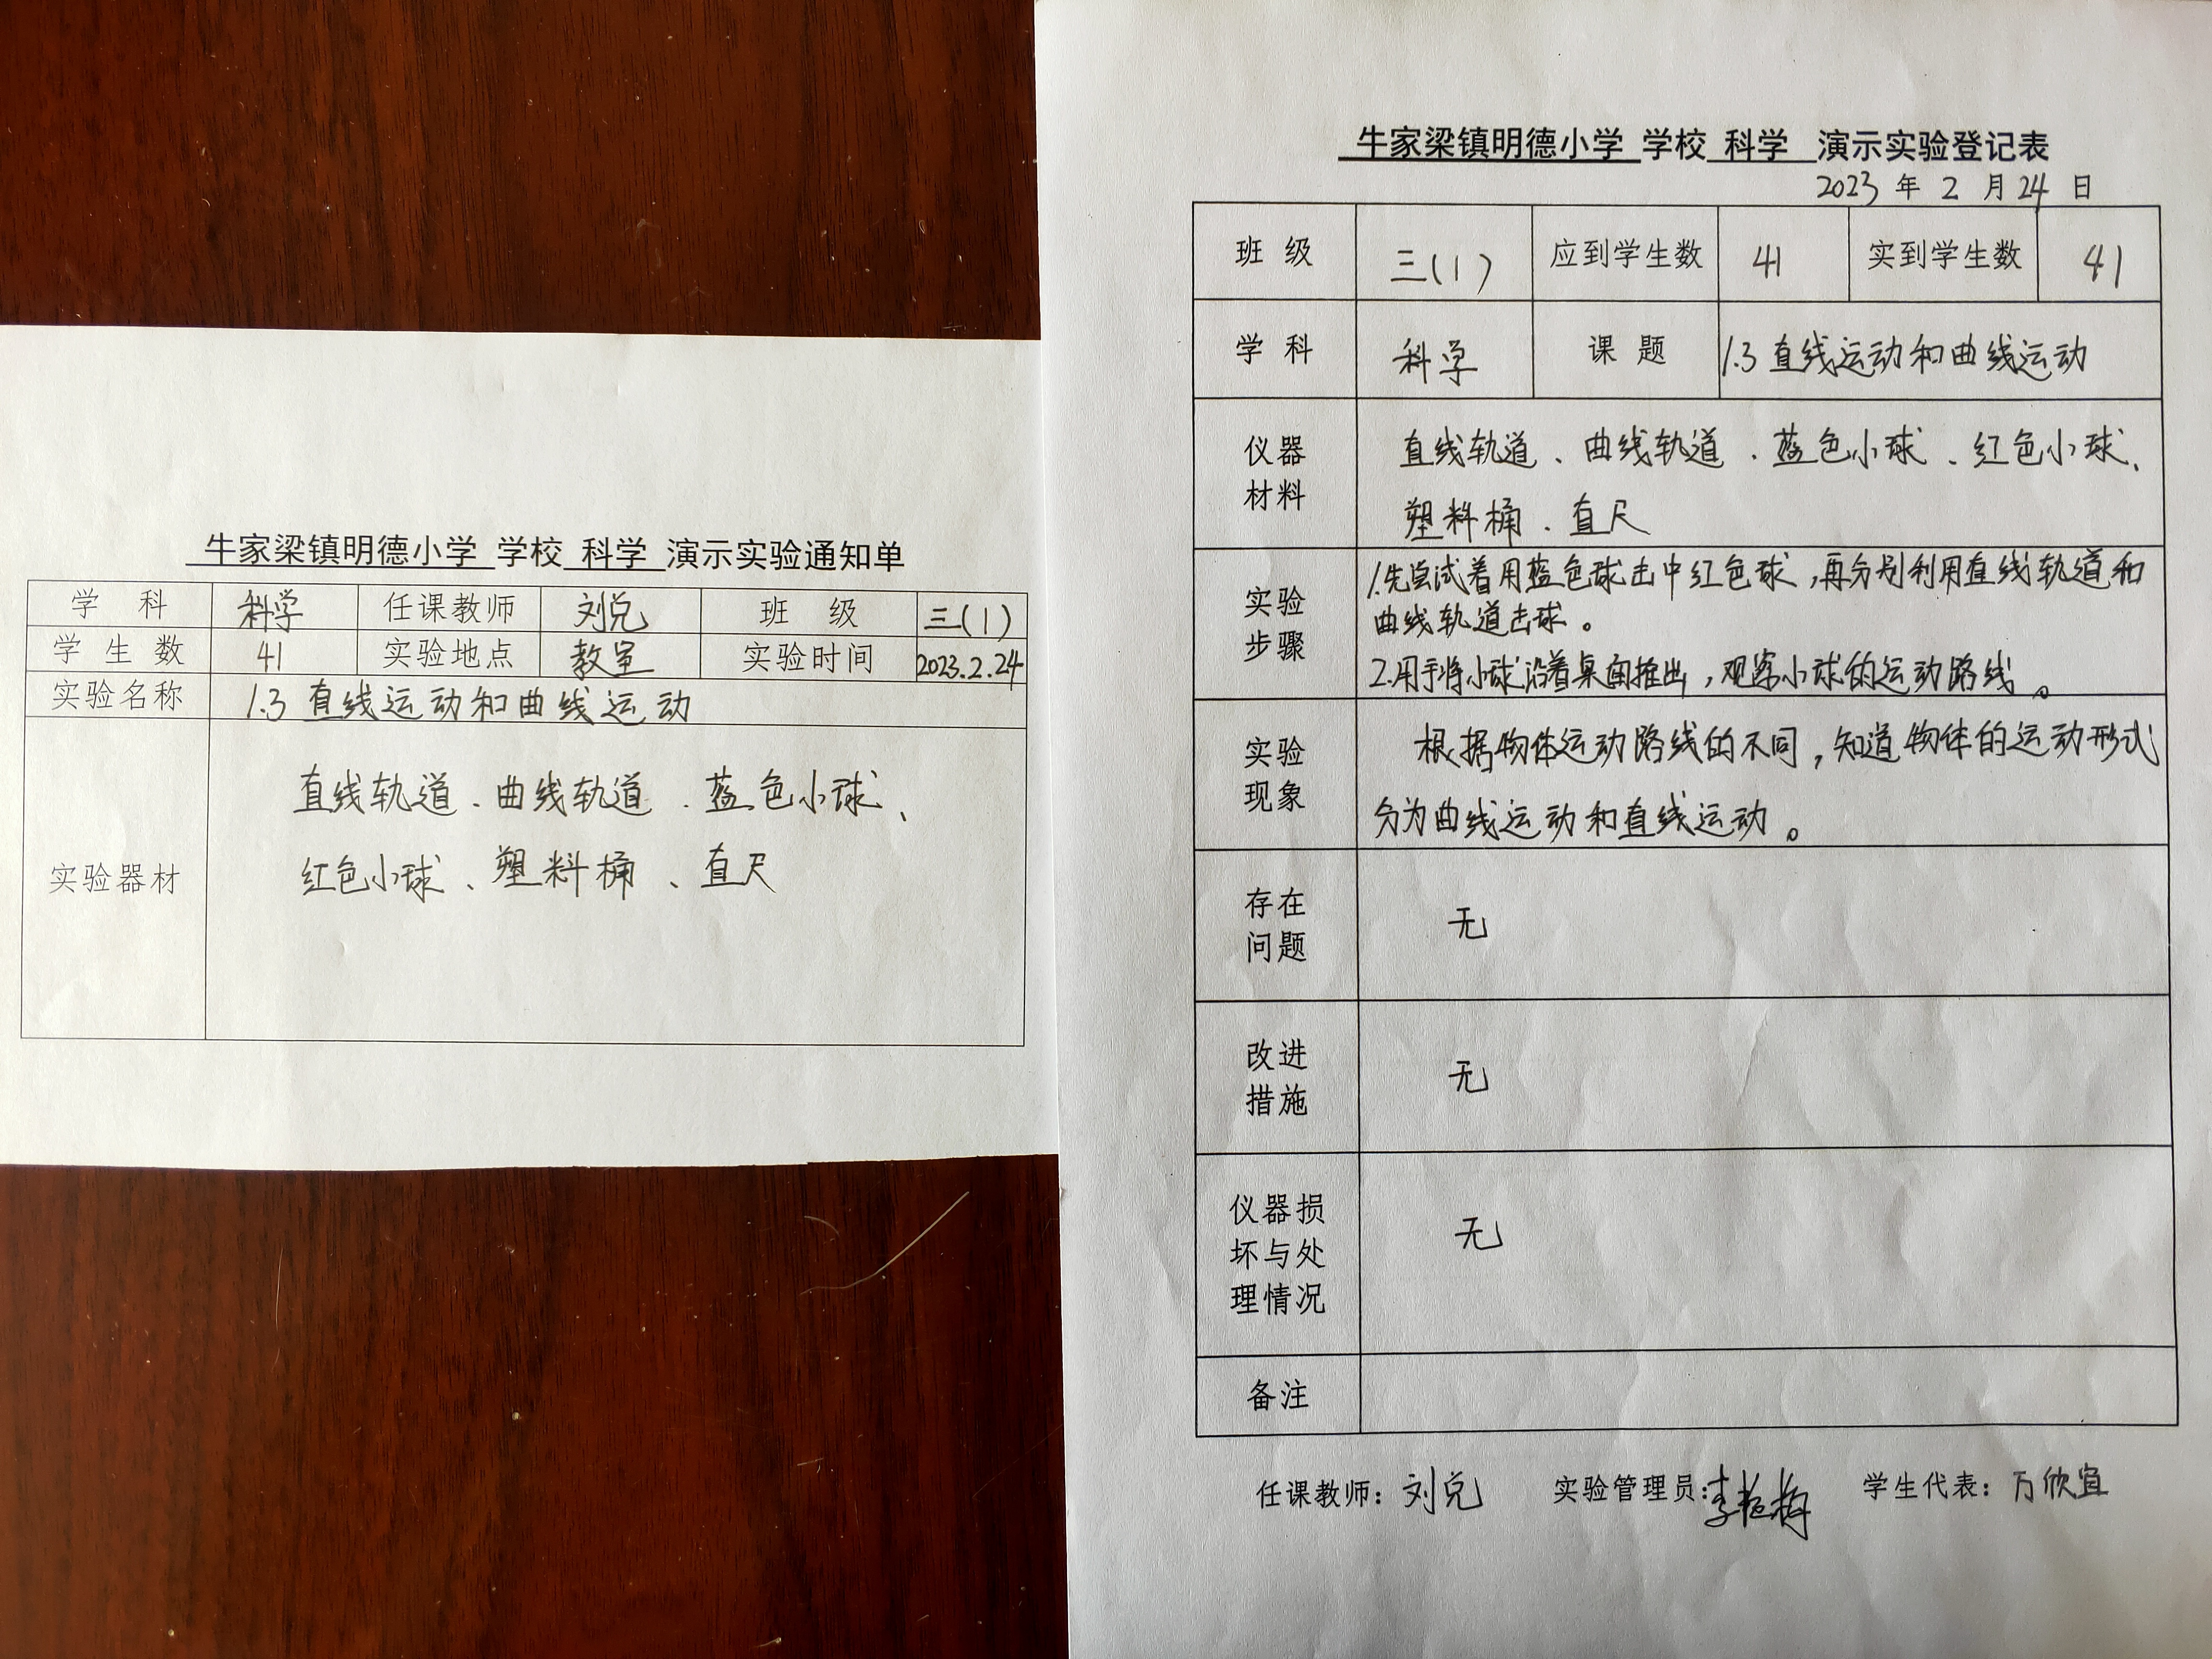 牛家梁镇明德小学 学校 科学 演示实验通知单
学 科 科学 任课教师 刘兑 班 级 三(1)
学 生 数 41 实验地点 教室 实验时间 2023.2.24
实验名称 1.3 直线运动和曲线运动
实验器材
直线轨道、曲线轨道、蓝色小球、
红色小球、塑料桶、直尺
牛家梁镇明德小学 学校 科学 演示实验登记表
2023 年 2 月 24 日
班 级 三(1) 应到学生数 41 实到学生数 41
学 科 科学 课 题 1.3 直线运动和曲线运动
仪器
材料
直线轨道、曲线轨道、蓝色小球、红色小球、
塑料桶、直尺
实验
步骤
1.先尝试着用蓝色球击中红色球,再分别利用直线轨道和
曲线轨道击球。
2.用手将小球沿着桌面推出,观察小球的运动路线。
实验
现象
根据物体运动路线的不同,知道物体的运动形式
分为曲线运动和直线运动。
存在
问题
无
改进
措施
无
仪器损
坏与处
理情况
无
备注
任课教师:刘兑 实验管理员: 学生代表:万欣宜